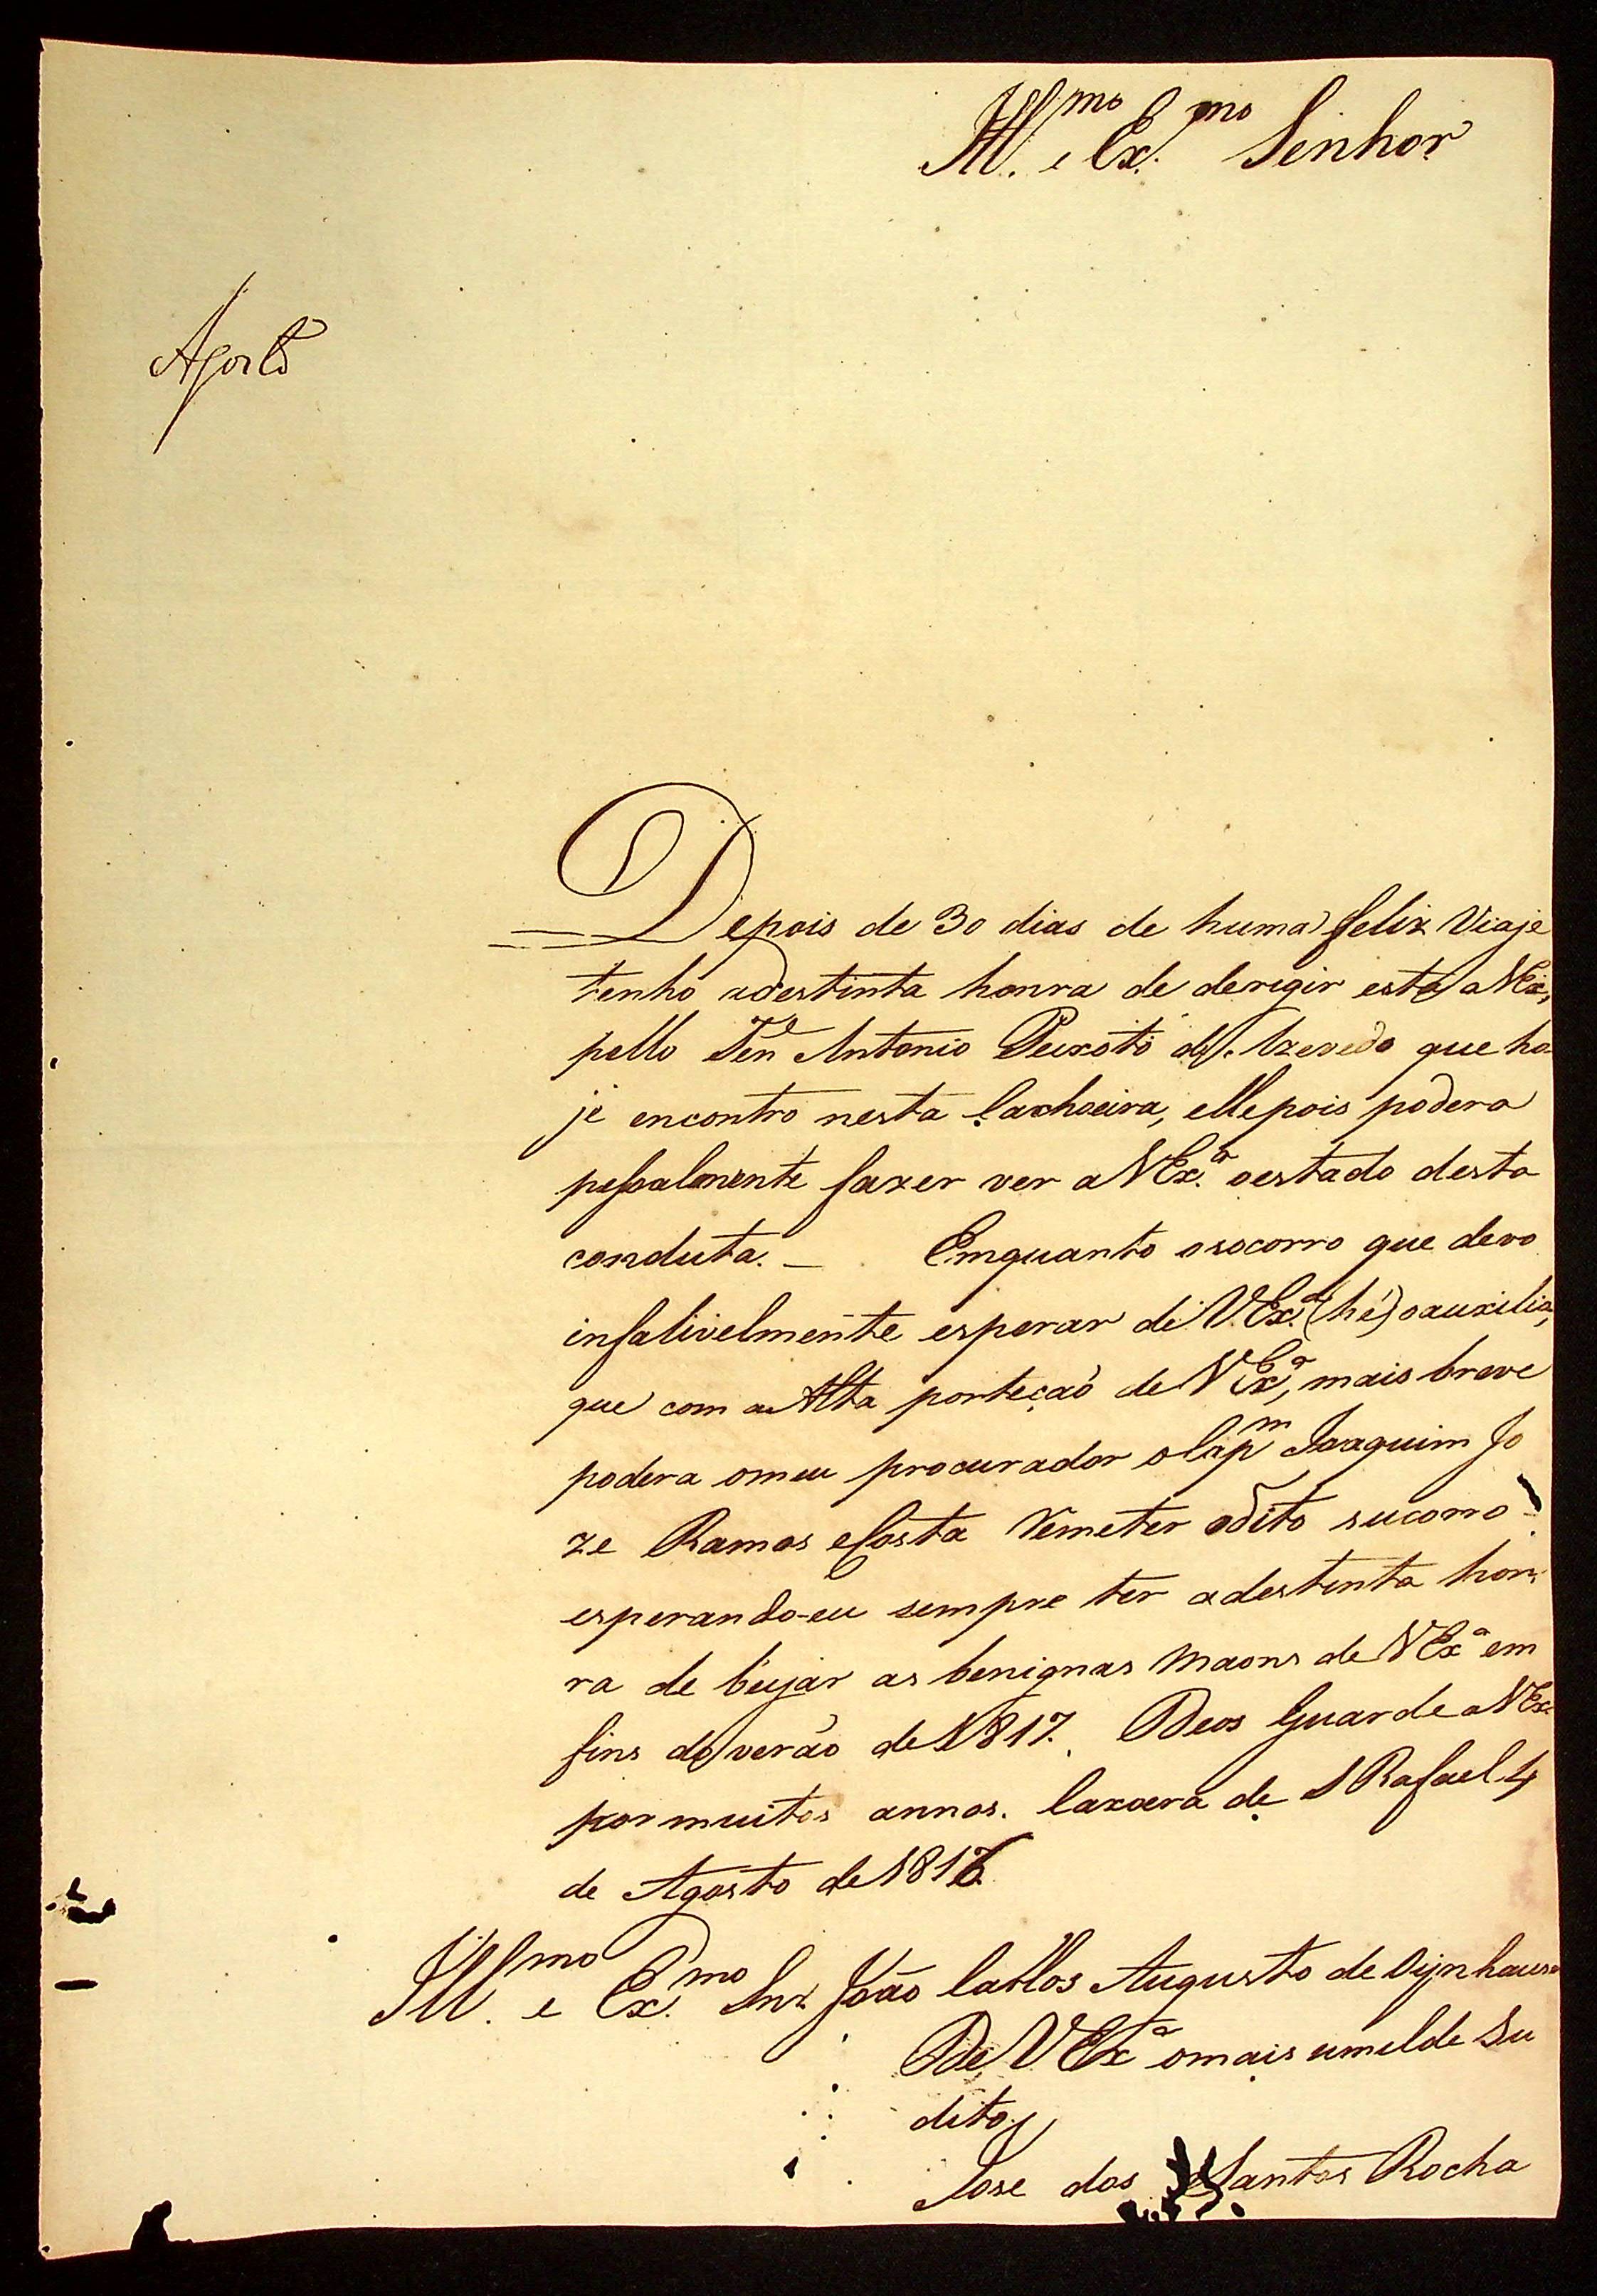 Ill.mo e Ex.mo Senhor
Agosto
Depois de 30 dias de huma feliz Viaje
tenho adestinta honra de derigir esta a VEx.ª
pello Ten.e Antonio Peixoto de Azevedo que ho
je encontro nesta Caxhoeira, ellepois podera
pessoalmente fazer ver a VEx.ª oestado desta
conduta. _ Emquanto osocorro que devo
infalivelmente esperar de V.Ex.ª (hé) oauxilio,
que com aAlta porteçaõ de VEx.ª, mais breve
podera omeu procurador oCap.m Joaquim Jo
ze Ramos eCosta Remeter odito sucorro
esperando-eu sempre ter adestinta hon
ra de beijar as benignas maons de VEx.ª em
fins do verão de 1817. Deos Guarde aVEx.ª
por muitos annos. Caxoera de S Rafael 4
de Agosto de 1816
Ill.mo e Ex.mo Snr João Carllos Augusto de Oijnhause
De VEx.ª omais umelde Su
dito
Jose dos Santos Rocha